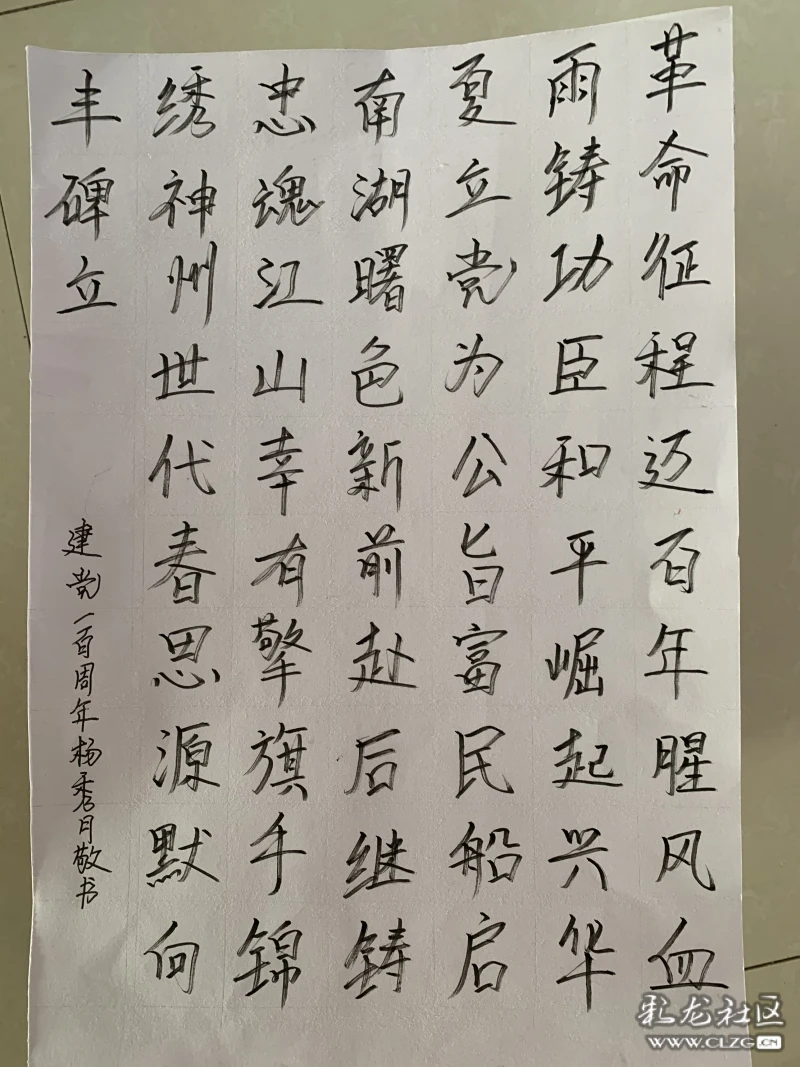 革命征程迈百年腥风血
雨铸功臣和平崛起兴华
夏立党为公旨富民船启
南湖曙色新前赴后继铸
忠魂江山幸有擎旗手锦
绣神州世代春思源默向
丰碑立
建党一百周年杨秀月敬书
彩龙社区
WWW.CLZG.CN